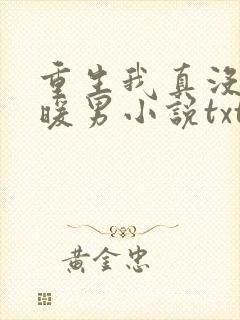 重生我真没
暖男小说txt
黄金忠